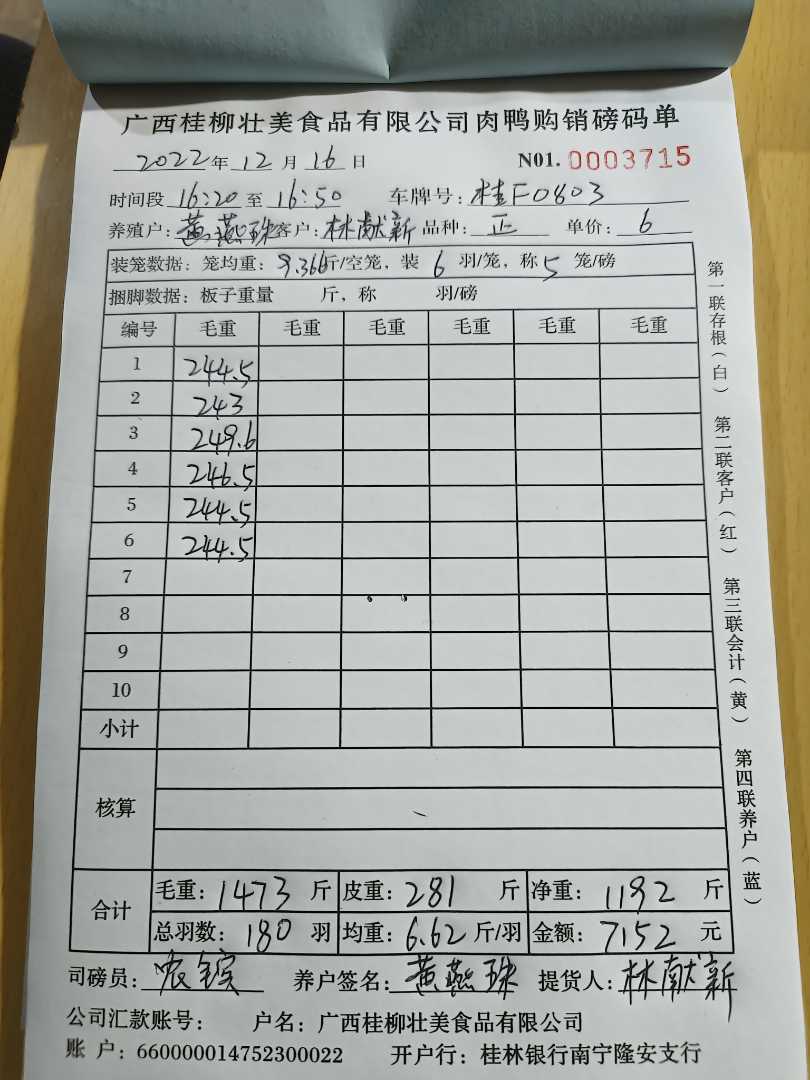 广西桂柳壮美食品有限公司肉鸭购销磅码单
2022年12月16日 N01.0003715
时间段16:20至16:50 车牌号:桂F0803
养殖户:黄燕珠客户:林献新品种:正 单价:6
装笼数据:笼均重:9.366斤/空笼,装6羽/笼,称5笼/磅
捆脚数据:板子重量 斤,称 羽/磅
编号 毛重 毛重 毛重 毛重 毛重 毛重
1 244.5
2 243
3 249.6
4 246.5
5 244.5
6 244.5
7
8
9
10
小计
核算
合计 毛重:1473斤 皮重:281斤 净重:1192斤
总羽数:180羽 均重:6.62斤/羽 金额:7152元
司磅员: 养户签名:黄燕珠 提货人:林献新
公司汇款账号: 户名:广西桂柳壮美食品有限公司
账 户:660000014752300022 开户行:桂林银行南宁隆安支行
第一联存根(白) 第二联客户(红) 第三联会计(黄) 第四联养户(蓝)